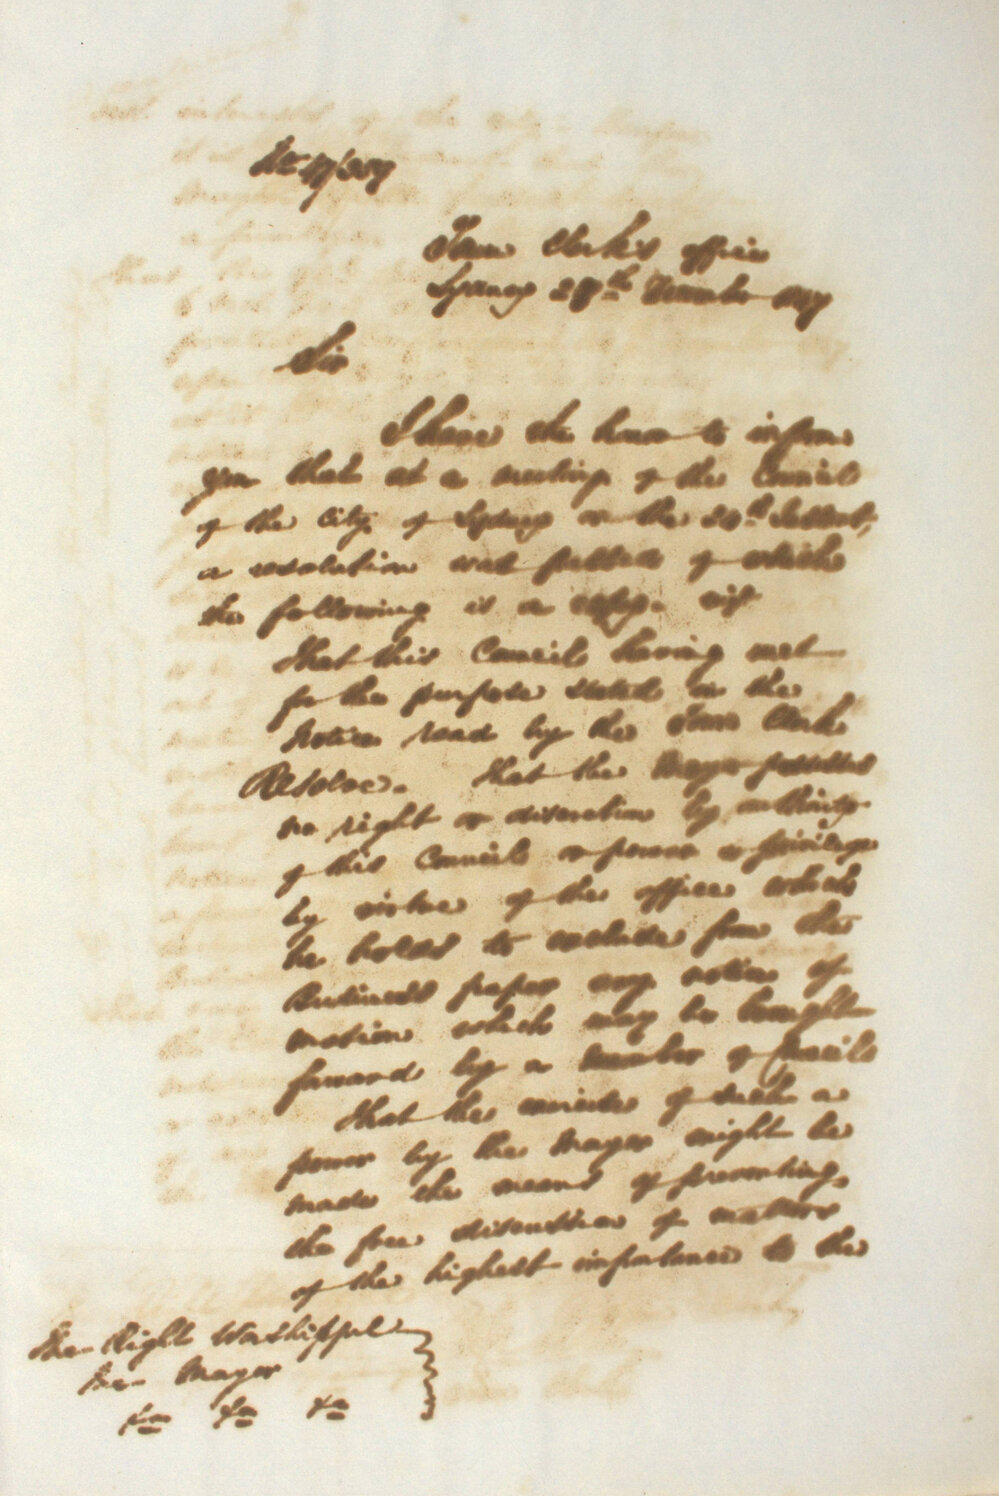 Town Clerk's Office
Sydney 28th December
Sir
I have the honor to inform
you that at a meeting of the Council
of the City of Sydney on the
a resolution was passed of which
the following is a copy. viz
That this Council having met
for the purpose stated in the
Notice read by the Town Clerk
Resolve. That the Mayor possesses
no right or discretion by authority
of this Council or power or privilege
by virtue of the office which
he holds to exclude from the
Business paper any notice of
motion which may be brought
forward by a Member of Council
That the exercise of such a
power by the Mayor might be
made the means of preventing
the free discussion of matters
of the highest importance to the
The Right Worshipful
The Mayor
&c &c &c